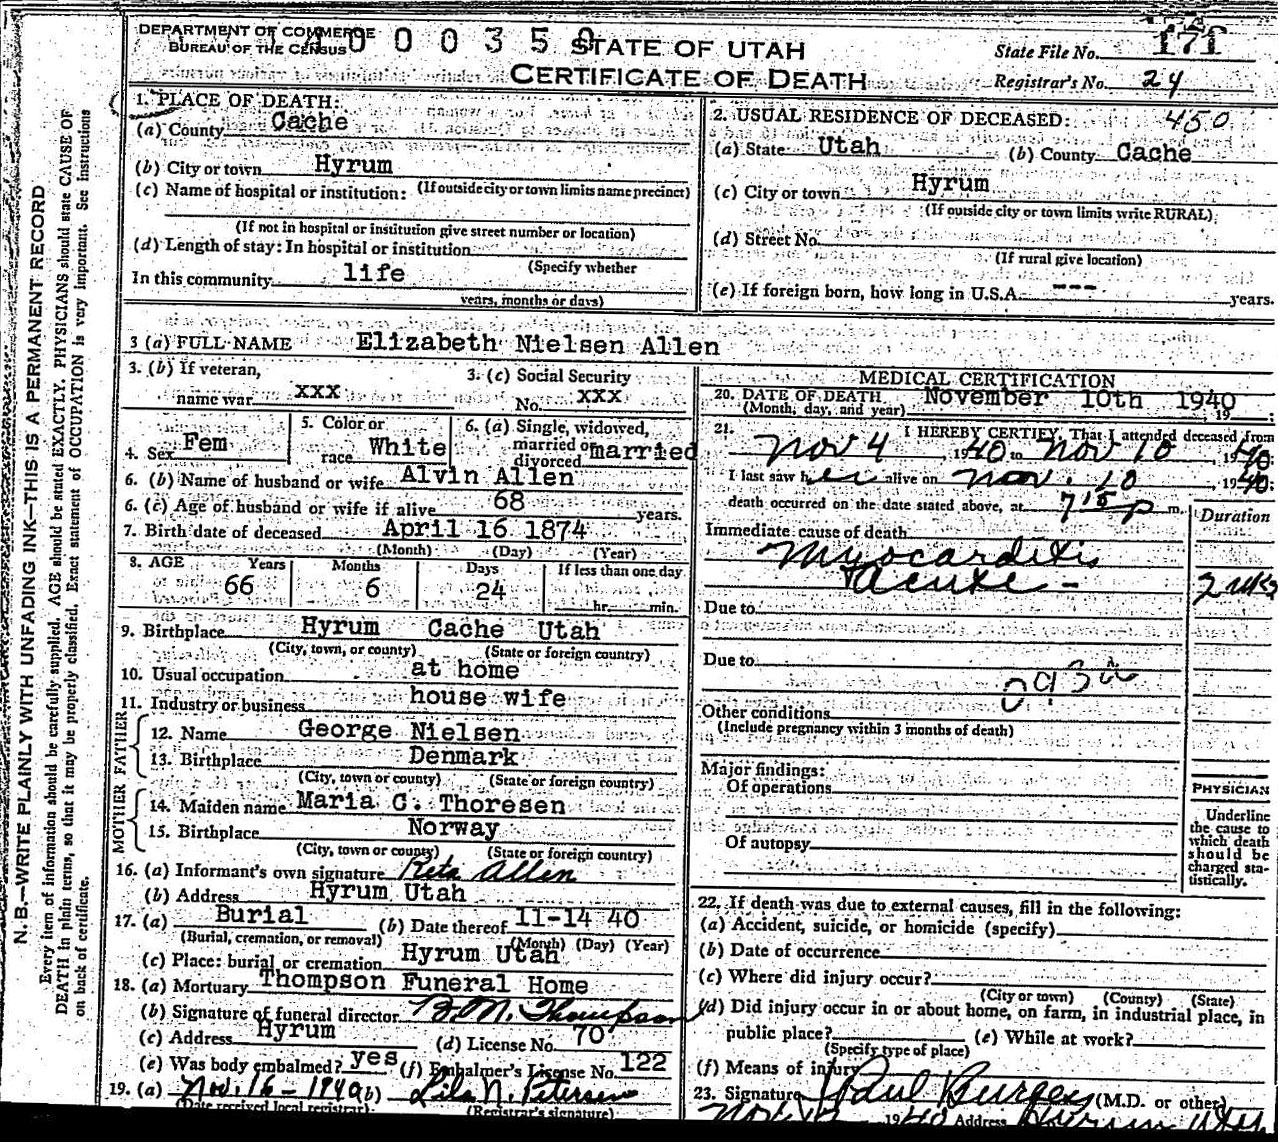 DEPARTMENT OF COMMERCE
BUREAU OF THE CENSUS
4000350
STATE OF UTAH
CERTIFICATE OF DEATH
State File No. 171
Registrar's No. 24
1. PLACE OF DEATH:
(a) County Cache
(b) City or town Hyrum
(If outside city or town limits name precinct)
(c) Name of hospital or institution:
(If not in hospital or institution give street number or location)
(d) Length of stay: In hospital or institution
(Specify whether
In this community life
years, months or days)
2. USUAL RESIDENCE OF DECEASED: 450
(a) State Utah (b) County Cache
(c) City or town Hyrum
(If outside city or town limits write RURAL)
(d) Street No.
(If rural give location)
(e) If foreign born, how long in U.S.A. --- years.
3 (a) FULL NAME Elizabeth Nielsen Allen
3. (b) If veteran,
name war xxx
3. (c) Social Security
No. xxx
4. Sex Fem
5. Color or
race White
6. (a) Single, widowed,
married or
divorced married
6. (b) Name of husband or wife Alvin Allen
6. (c) Age of husband or wife if alive 68 years.
7. Birth date of deceased April 16 1874
(Month) (Day) (Year)
8. AGE Years Months Days If less than one day
66 6 24 hr. min.
9. Birthplace Hyrum Cache Utah
(City, town, or county) (State or foreign country)
10. Usual occupation at home
11. Industry or business house wife
FATHER
12. Name George Nielsen
13. Birthplace Denmark
(City, town or county) (State or foreign country)
MOTHER
14. Maiden name Maria C. Thoresen
15. Birthplace Norway
(City, town or county) (State or foreign country)
16. (a) Informant's own signature Reta Allen
(b) Address Hyrum Utah
17. (a) Burial (b) Date thereof 11-14 40
(Burial, cremation, or removal) (Month) (Day) (Year)
(c) Place: burial or cremation Hyrum Utah
18. (a) Mortuary Thompson Funeral Home
(b) Signature of funeral director Thompson
(c) Address Hyrum (d) License No. 70
(e) Was body embalmed? yes (f) Embalmer's License No. 122
19. (a) Nov. 16 - 1940 (b) Lila N. Petersen
(Date received local registrar) (Registrar's signature)
MEDICAL CERTIFICATION
20. DATE OF DEATH November 10th 1940
(Month, day, and year) 19
21. I HEREBY CERTIFY, That I attended deceased from
Nov 4, 1940 to Nov 10, 1940;
I last saw her alive on Nov. 10, 1940;
death occurred on the date stated above, at 7 15 p m.
Duration
Immediate cause of death
Myocarditis
acute - 2 wks
Due to
Due to
093a
Other conditions
(Include pregnancy within 3 months of death)
Major findings:
Of operations
Of autopsy
PHYSICIAN
Underline
the cause to
which death
should be
charged sta-
tistically.
22. If death was due to external causes, fill in the following:
(a) Accident, suicide, or homicide (specify)
(b) Date of occurrence
(c) Where did injury occur?
(City or town) (County) (State)
(d) Did injury occur in or about home, on farm, in industrial place, in
public place? (e) While at work?
(Specify type of place)
(f) Means of injury
23. Signature Paul Burgess (M.D. or other)
1940 Address Hyrum Utah
N. B.—WRITE PLAINLY WITH UNFADING INK—THIS IS A PERMANENT RECORD
Every item of information should be carefully supplied. AGE should be stated EXACTLY. PHYSICIANS should state CAUSE OF
DEATH in plain terms, so that it may be properly classified. Exact statement of OCCUPATION is very important. See instructions
on back of certificate.